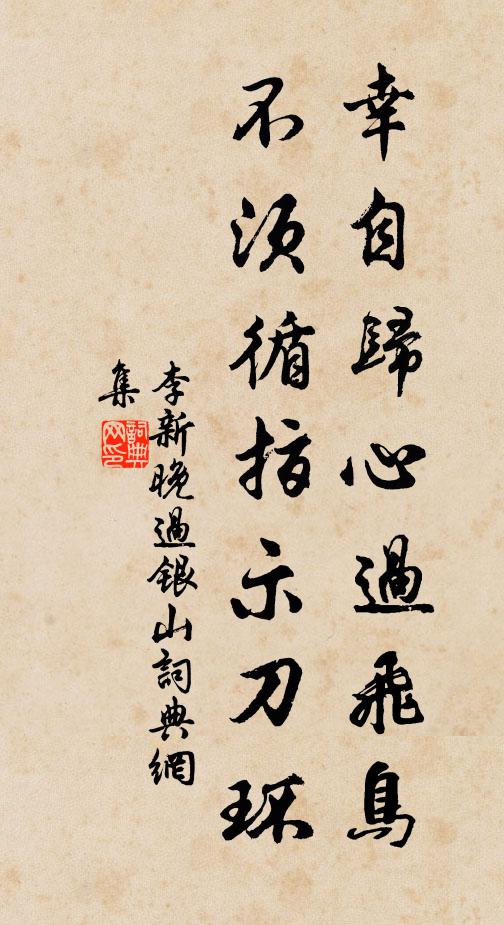 幸自歸心過飛鳥
不須循指示刀环
李新晚過銀山詞典網
集
詞典
网印